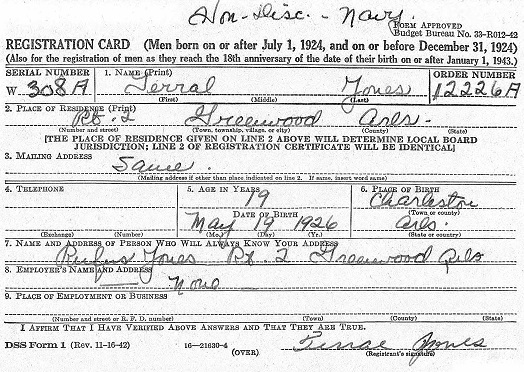 Hon-Disc. - Navy.
FORM APPROVED
Budget Bureau No. 33-R012-42
REGISTRATION CARD (Men born on or after July 1, 1924, and on or before December 31, 1924)
(Also for the registration of men as they reach the 18th anniversary of the date of their birth on or after January 1, 1943.)
SERIAL NUMBER 1. NAME (Print) ORDER NUMBER
W 308A Terral Jones 12226A
(First) (Middle) (Last)
2. PLACE OF RESIDENCE (Print)
Rt. 2 Greenwood Ark.
(Number and street) (Town, township, village, or city) (County) (State)
[THE PLACE OF RESIDENCE GIVEN ON LINE 2 ABOVE WILL DETERMINE LOCAL BOARD
JURISDICTION; LINE 2 OF REGISTRATION CERTIFICATE WILL BE IDENTICAL]
3. MAILING ADDRESS
Same.
(Mailing address if other than place indicated on line 2. If same, insert word same)
4. TELEPHONE 5. AGE IN YEARS 6. PLACE OF BIRTH
19 Charleston
DATE OF BIRTH (Town or county)
May 19 1926 Ark.
(Exchange) (Number) (Mo.) (Day) (Yr.) (State or country)
7. NAME AND ADDRESS OF PERSON WHO WILL ALWAYS KNOW YOUR ADDRESS
Rufus Jones Rt. 2 Greenwood Ark
8. EMPLOYER'S NAME AND ADDRESS
None
9. PLACE OF EMPLOYMENT OR BUSINESS
(Number and street or R. F. D. number) (Town) (County) (State)
I AFFIRM THAT I HAVE VERIFIED ABOVE ANSWERS AND THAT THEY ARE TRUE.
DSS Form 1 (Rev. 11-16-42) 16—21630-4 Jones
(OVER) (Registrant's signature)